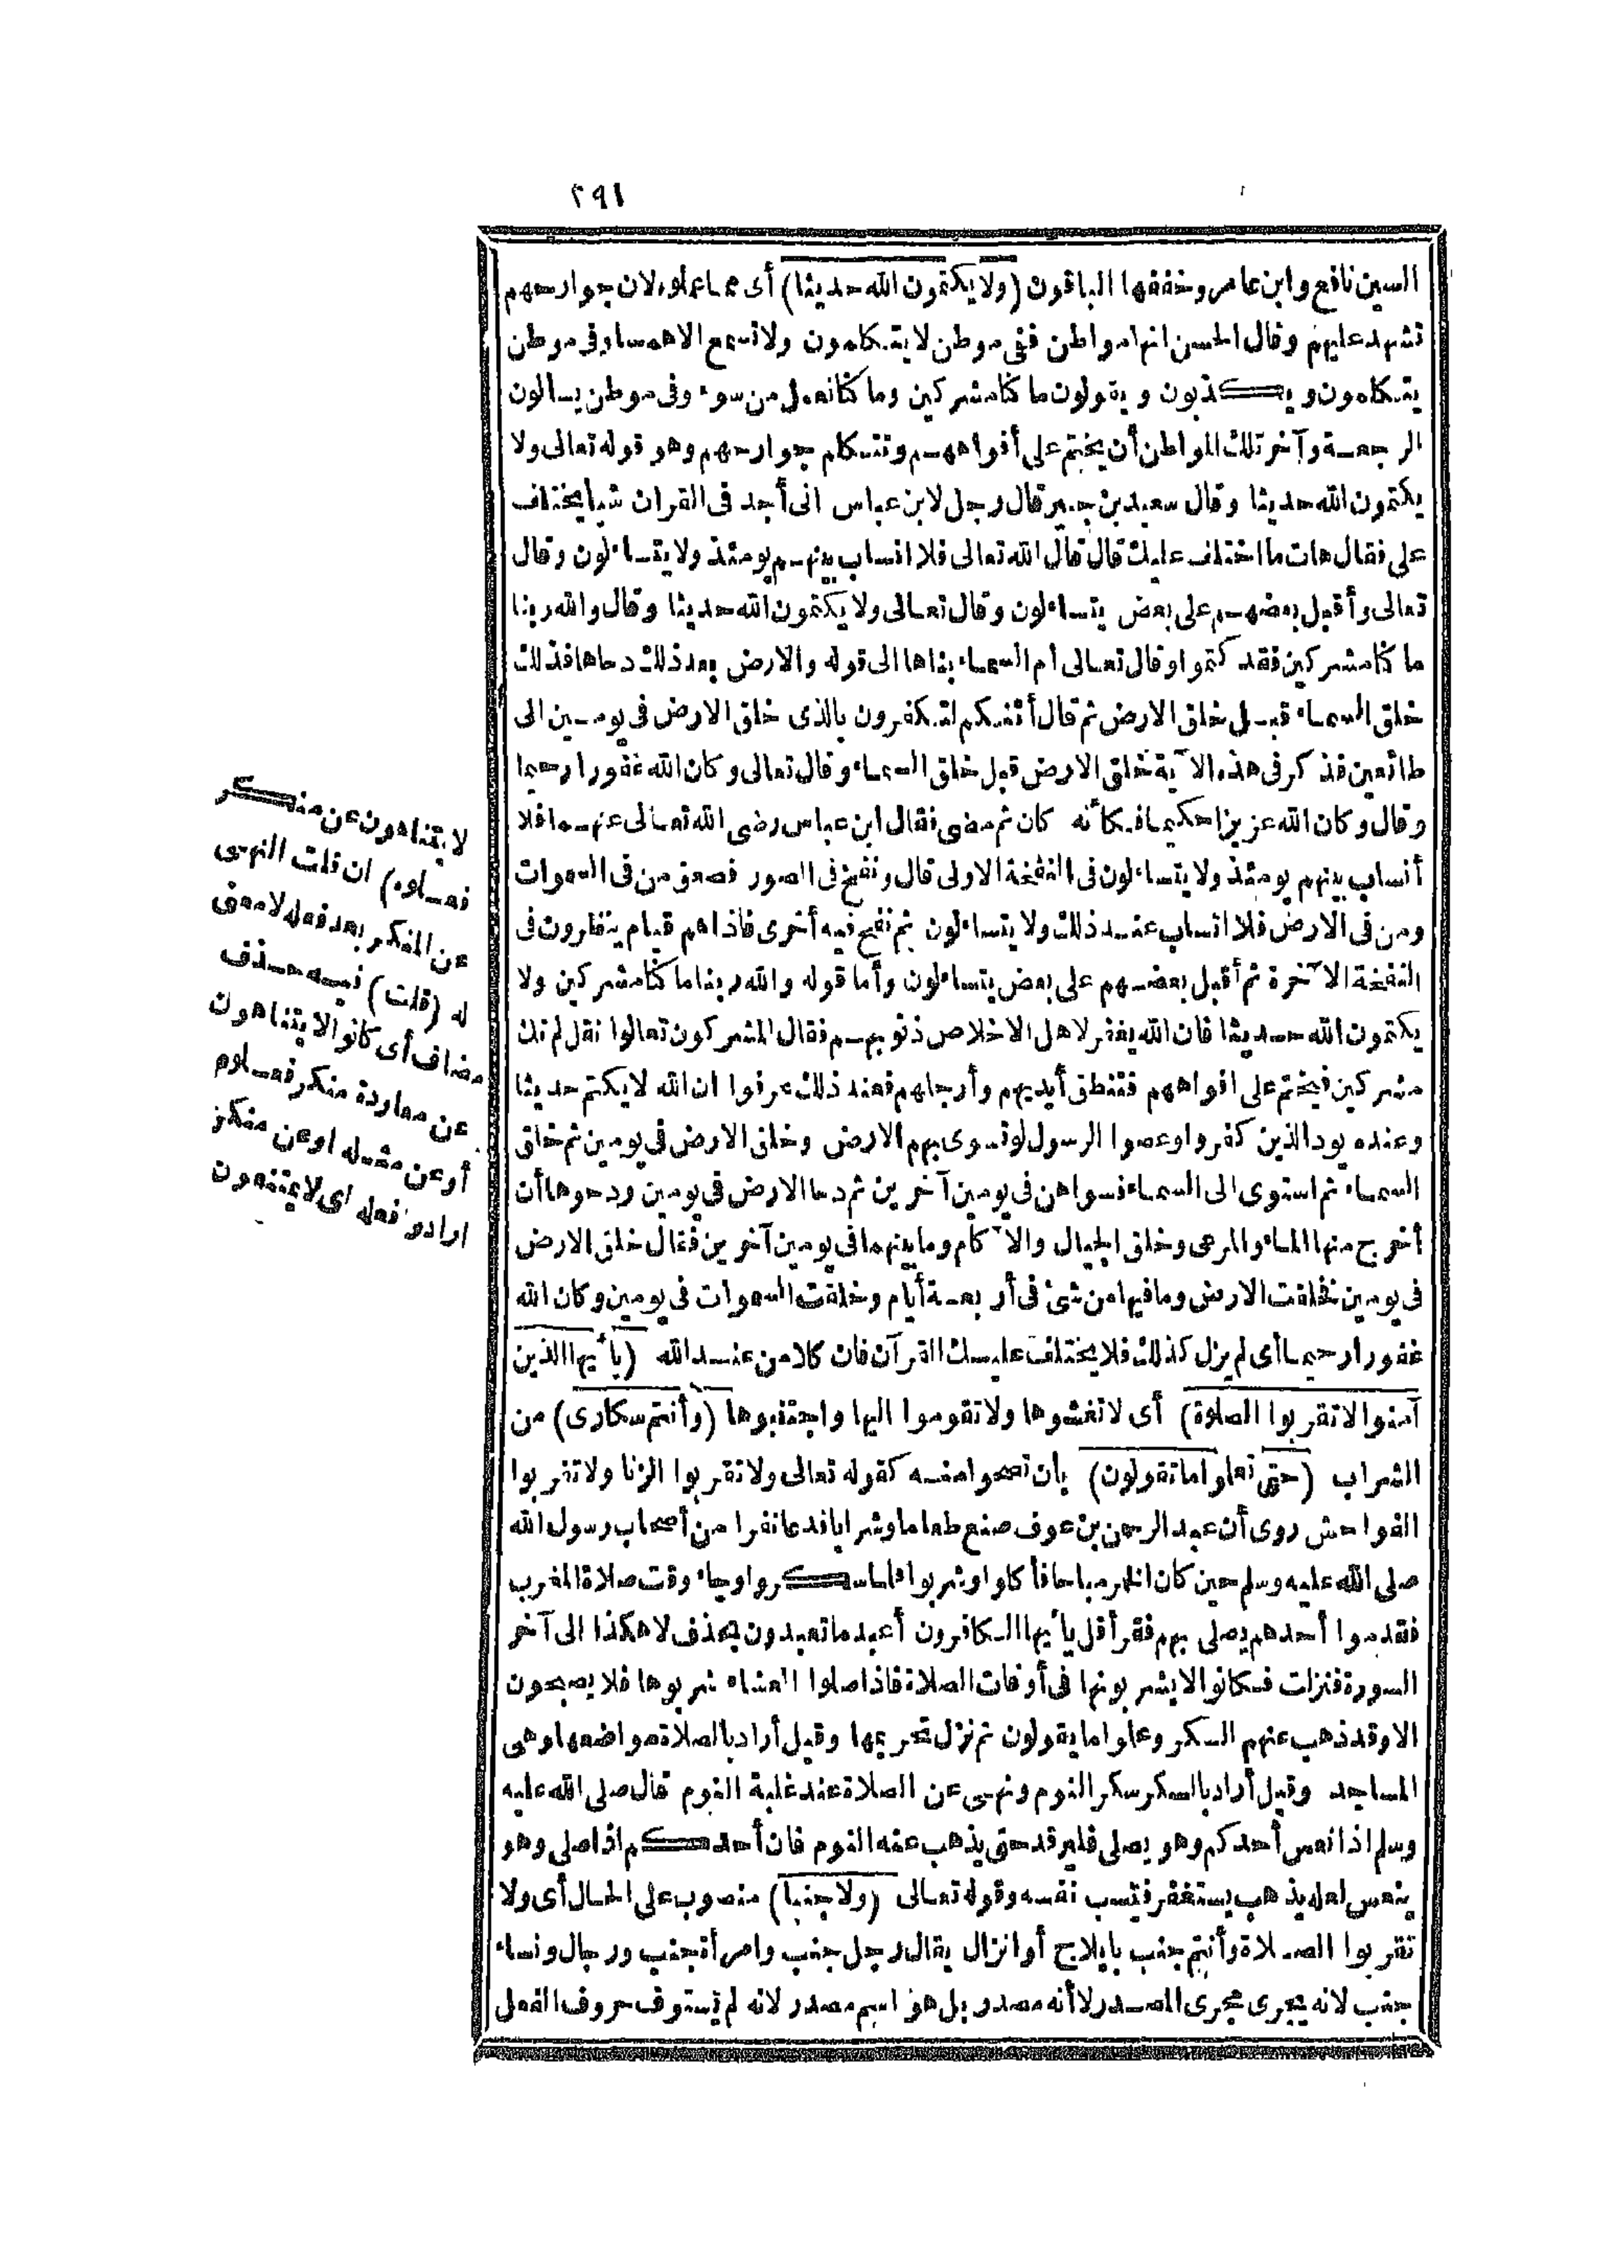 ٢٩١
السين نافع وابن عامر وخففها الباقون (ولا يكتمون الله حديثا) أى مما عملوه لان جوارحهم
تشهد عليهم وقال الحسن انها مواطن ففى موطن لا يتكلمون ولا تسمع الا همسا وفى موطن
يتكلمون ويكذبون ويقولون ما كنا مشركين وما كنا نعمل من سوء وفى موطن يسالون
الرجعة وآخر تلك المواطن أن يختم على أفواههم وتتكلم جوارحهم وهو قوله تعالى ولا
يكتمون الله حديثا وقال سعيد بن جبير قال رجل لابن عباس انى أجد فى القران شيا يختلف
على فقال هات ما اختلف عليك قال قال الله تعالى فلا انساب بينهم يومئذ ولا يتساءلون وقال
تعالى وأقبل بعضهم على بعض يتساءلون وقال تعالى ولا يكتمون الله حديثا وقال والله ربنا
ما كنا مشركين فقد كتموا وقال تعالى ام السماء بناها الى قوله والارض بعد ذلك دحاها فذلك
خلق السماء قبل خلق الارض ثم قال أئنكم لتكفرون بالذى خلق الارض فى يومين الى
طائعين فذكر فى هذه الآية خلق الارض قبل خلق السماء وقال تعالى وكان الله غفورا رحيما
وقال وكان الله عزيزا حكيما فكأنه كان ثم مضى فقال ابن عباس رضى الله تعالى عنهما فلا
أنساب بينهم يومئذ ولا يتساءلون فى النفخة الاولى قال ونفخ فى الصور فصعق من فى السموات
ومن فى الارض فلا انساب عند ذلك ولا يتساءلون ثم نفخ فيه أخرى فاذا هم قيام ينظرون فى
النفخة الآخرة ثم أقبل بعضهم على بعض يتساءلون وأما قوله والله ربنا ما كنا مشركين ولا
يكتمون الله حديثا فان الله يغفر لاهل الاخلاص ذنوبهم فقال المشركون تعالوا نقل لم نك
مشركين فيختم على افواههم فتنطق أيديهم وأرجلهم فعند ذلك عرفوا ان الله لا يكتم حديثا
وعنده يود الذين كفروا وعصوا الرسول لو تسوى بهم الارض وخلق الارض فى يومين ثم خلق
السماء ثم استوى الى السماء فسواهن فى يومين آخرين ثم دحا الارض فى يومين ودحوها أن
أخرج منها الماء والمرعى وخلق الجبال والآكام وما بينهما فى يومين آخرين فقال خلق الارض
فى يومين فخلقت الارض وما فيها من شئ فى أربعة أيام وخلقت السموات فى يومين وكان الله
غفورا رحيما أى لم يزل كذلك فلا يختلف عليك القرآن فان كلا من عند الله (يا أيها الذين
آمنوا لا تقربوا الصلوة) أى لا تغشوها ولا تقوموا اليها واجتنبوها (وأنتم سكارى) من
الشراب (حتى تعلموا ما تقولون) بان تصحوا منه كقوله تعالى ولا تقربوا الزنا ولا تقربوا
الفواحش روى أن عبد الرحمن بن عوف صنع طعاما وشرابا فدعا نفرا من أصحاب رسول الله
صلى الله عليه وسلم حين كان الخمر مباحا فأكلوا وشربوا فلما سكروا وجاء وقت صلاة المغرب
فقدموا أحدهم يصلى بهم فقرأ قل يا أيها الكافرون أعبد ما تعبدون بحذف لا هكذا الى آخر
السورة فنزلت فكانوا لا يشربونها فى أوقات الصلاة فاذا صلوا العشاء شربوها فلا يصبحون
الا وقد ذهب عنهم السكر وعلموا ما يقولون ثم نزل تحريمها وقيل أراد بالصلاة مواضعها وهى
المساجد وقيل أراد بالسكر سكر النوم ونهى عن الصلاة عند غلبة النوم قال صلى الله عليه
وسلم اذا نعس أحدكم وهو يصلى فليرقد حتى يذهب عنه النوم فان أحدكم اذا صلى وهو
ينعس لعله يذهب يستغفر فيسب نفسه وقوله تعالى (ولا جنبا) منصوب على الحال أى ولا
تقربوا الصلاة وأنتم جنب بايلاج أو انزال يقال رجل جنب وامرأة جنب ورجال ونساء
جنب لانه يجرى مجرى المصدر لا أنه مصدر بل هو اسم مصدر لانه لم يستوف حروف الفعل
لا يتناهون عن منكر
فعلوه) ان قلت النهى
عن المنكر بعد فعله لا معنى
له (قلت) فيه حذف
مضاف أى كانوا لا يتناهون
عن معاودة منكر فعلوه
أو عن مثله او عن منكر
ارادوا فعله اى لا يمتنعون